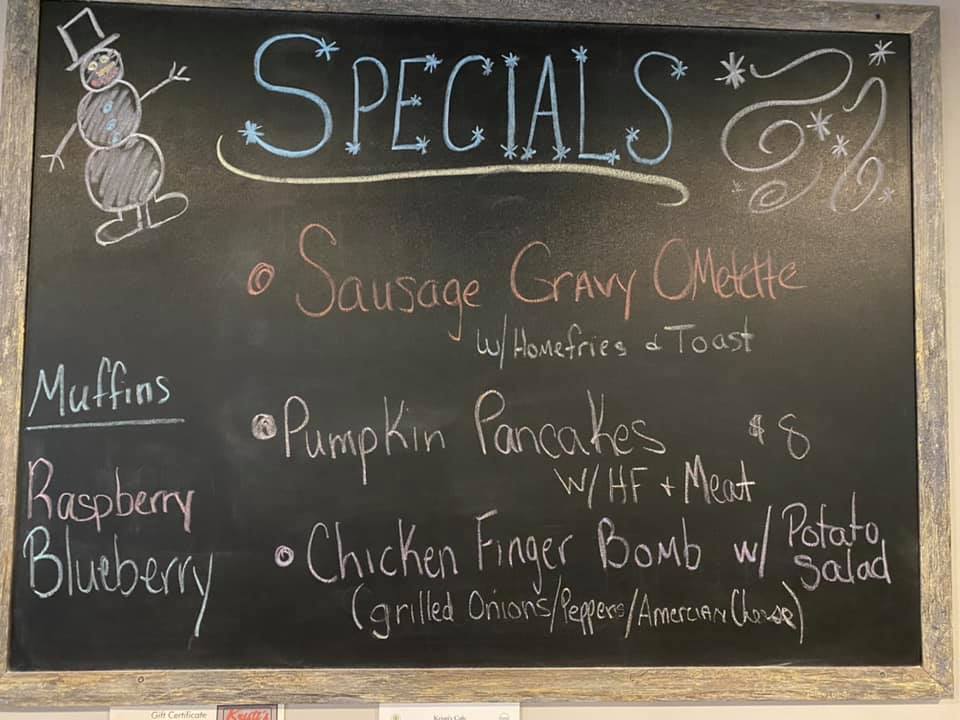 SPECIALS
Sausage Gravy Omelette
w/ Homefries & Toast
Muffins
Raspberry
Blueberry
Pumpkin Pancakes $8
w/ HF + Meat
Chicken Finger Bomb w/ Potato Salad
(grilled Onions/Peppers/Amercian Cheese)
Gift Certificate